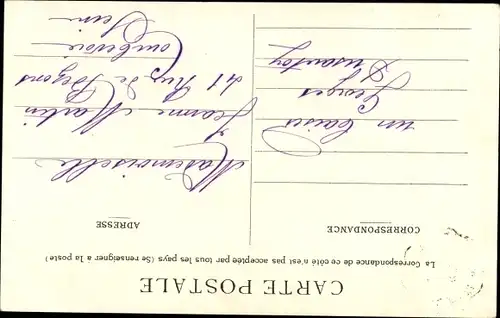 CARTE POSTALE
La Correspondance de ce côté n'est pas acceptée par tous les pays (Se renseigner à la poste)
CORRESPONDANCE
un baiser
Georges
ADRESSE
Mademoiselle
Jeanne Martin
41 Rue de Bezons
Courbevoie
Seine